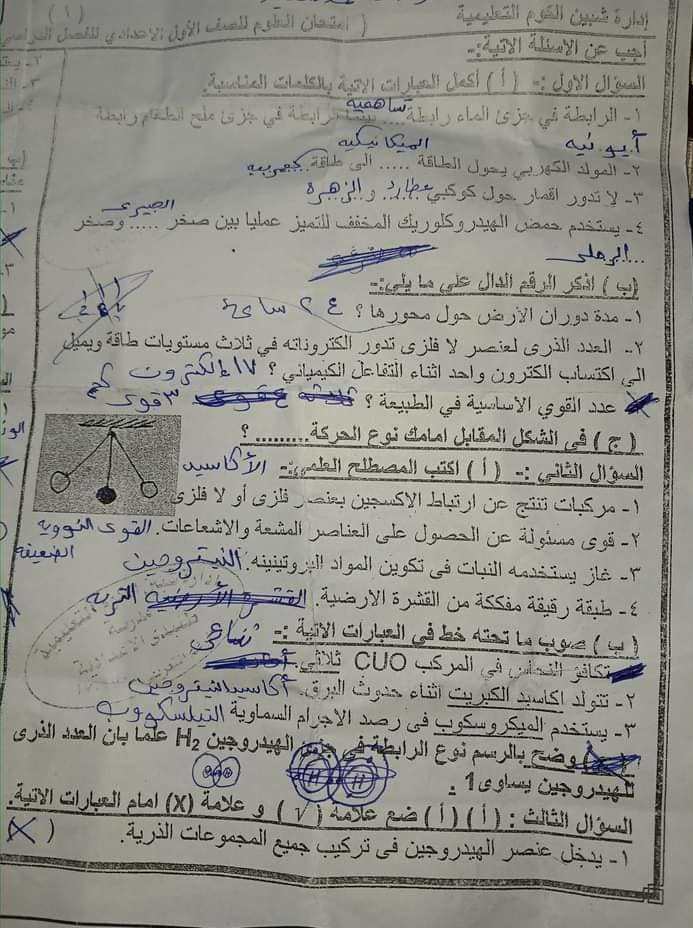 إدارة شبين الكوم التعليمية
( امتحان العلوم للصف الأول الاعدادي للفصل الدراسي
( ١ )
أجب عن الاسئلة الاتية:-
السؤال الاول :- ( أ ) أكمل العبارات الاتية بالكلمات المناسبة.
تساهمية
١- الرابطة في جزئ الماء رابطة.... بينما الرابطة في جزئ ملح الطعام رابطة
أيونيه
الميكانيكيه
٢- المولد الكهربي يحول الطاقة ..... الى طاقة كهربيه
٣- لا تدور اقمار حول كوكبي عطارد و الزهرة
الجيرى
٤- يستخدم حمض الهيدروكلوريك المخفف للتميز عمليا بين صخر ..... وصخر
...الرملى
(ب ) اذكر الرقم الدال علي ما يلي:-
١- مدة دوران الارض حول محورها ؟ ٢٤ ساعة
٢- العدد الذرى لعنصر لا فلزى تدور الكتروناته في ثلاث مستويات طاقة ويميل
الي اكتساب الكترون واحد اثناء التفاعل الكيميائي ؟ ١٧ الكترون
عدد القوي الاساسية في الطبيعة ؟ ٣ قوى
( ج ) فى الشكل المقابل امامك نوع الحركة.......... ؟
السؤال الثاني :- ( أ ) اكتب المصطلح العلمي:- الأكاسيد
١- مركبات تنتج عن ارتباط الاكسجين بعنصر فلزى أو لا فلزى
٢- قوى مسئولة عن الحصول على العناصر المشعة والاشعاعات. القوى النووية
الضعيفة
٣- غاز يستخدمه النبات فى تكوين المواد البروتينينه. النيتروجين
٤- طبقة رقيقة مفككة من القشرة الارضية. التربه
( ب ) صوب ما تحته خط في العبارات الاتية :- ثنائى
تكافؤ النحاس في المركب CUO ثلاثي
٢- تتولد اكاسيد الكبريت اثناء حدوث البرق. أكاسيد النيتروجين
٣- يستخدم الميكروسكوب فى رصد الاجرام السماوية التيلسكوب
وضح بالرسم نوع الرابطة في جزئ الهيدروجين H2 علما بان العدد الذرى
للهيدروجين يساوى1 .
H H
السؤال الثالث : ( أ ) ( أ ) ضع علامة ( √ ) و علامة (X) امام العبارات الاتية.
١- يدخل عنصر الهيدروجين فى تركيب جميع المجموعات الذرية. ( X )